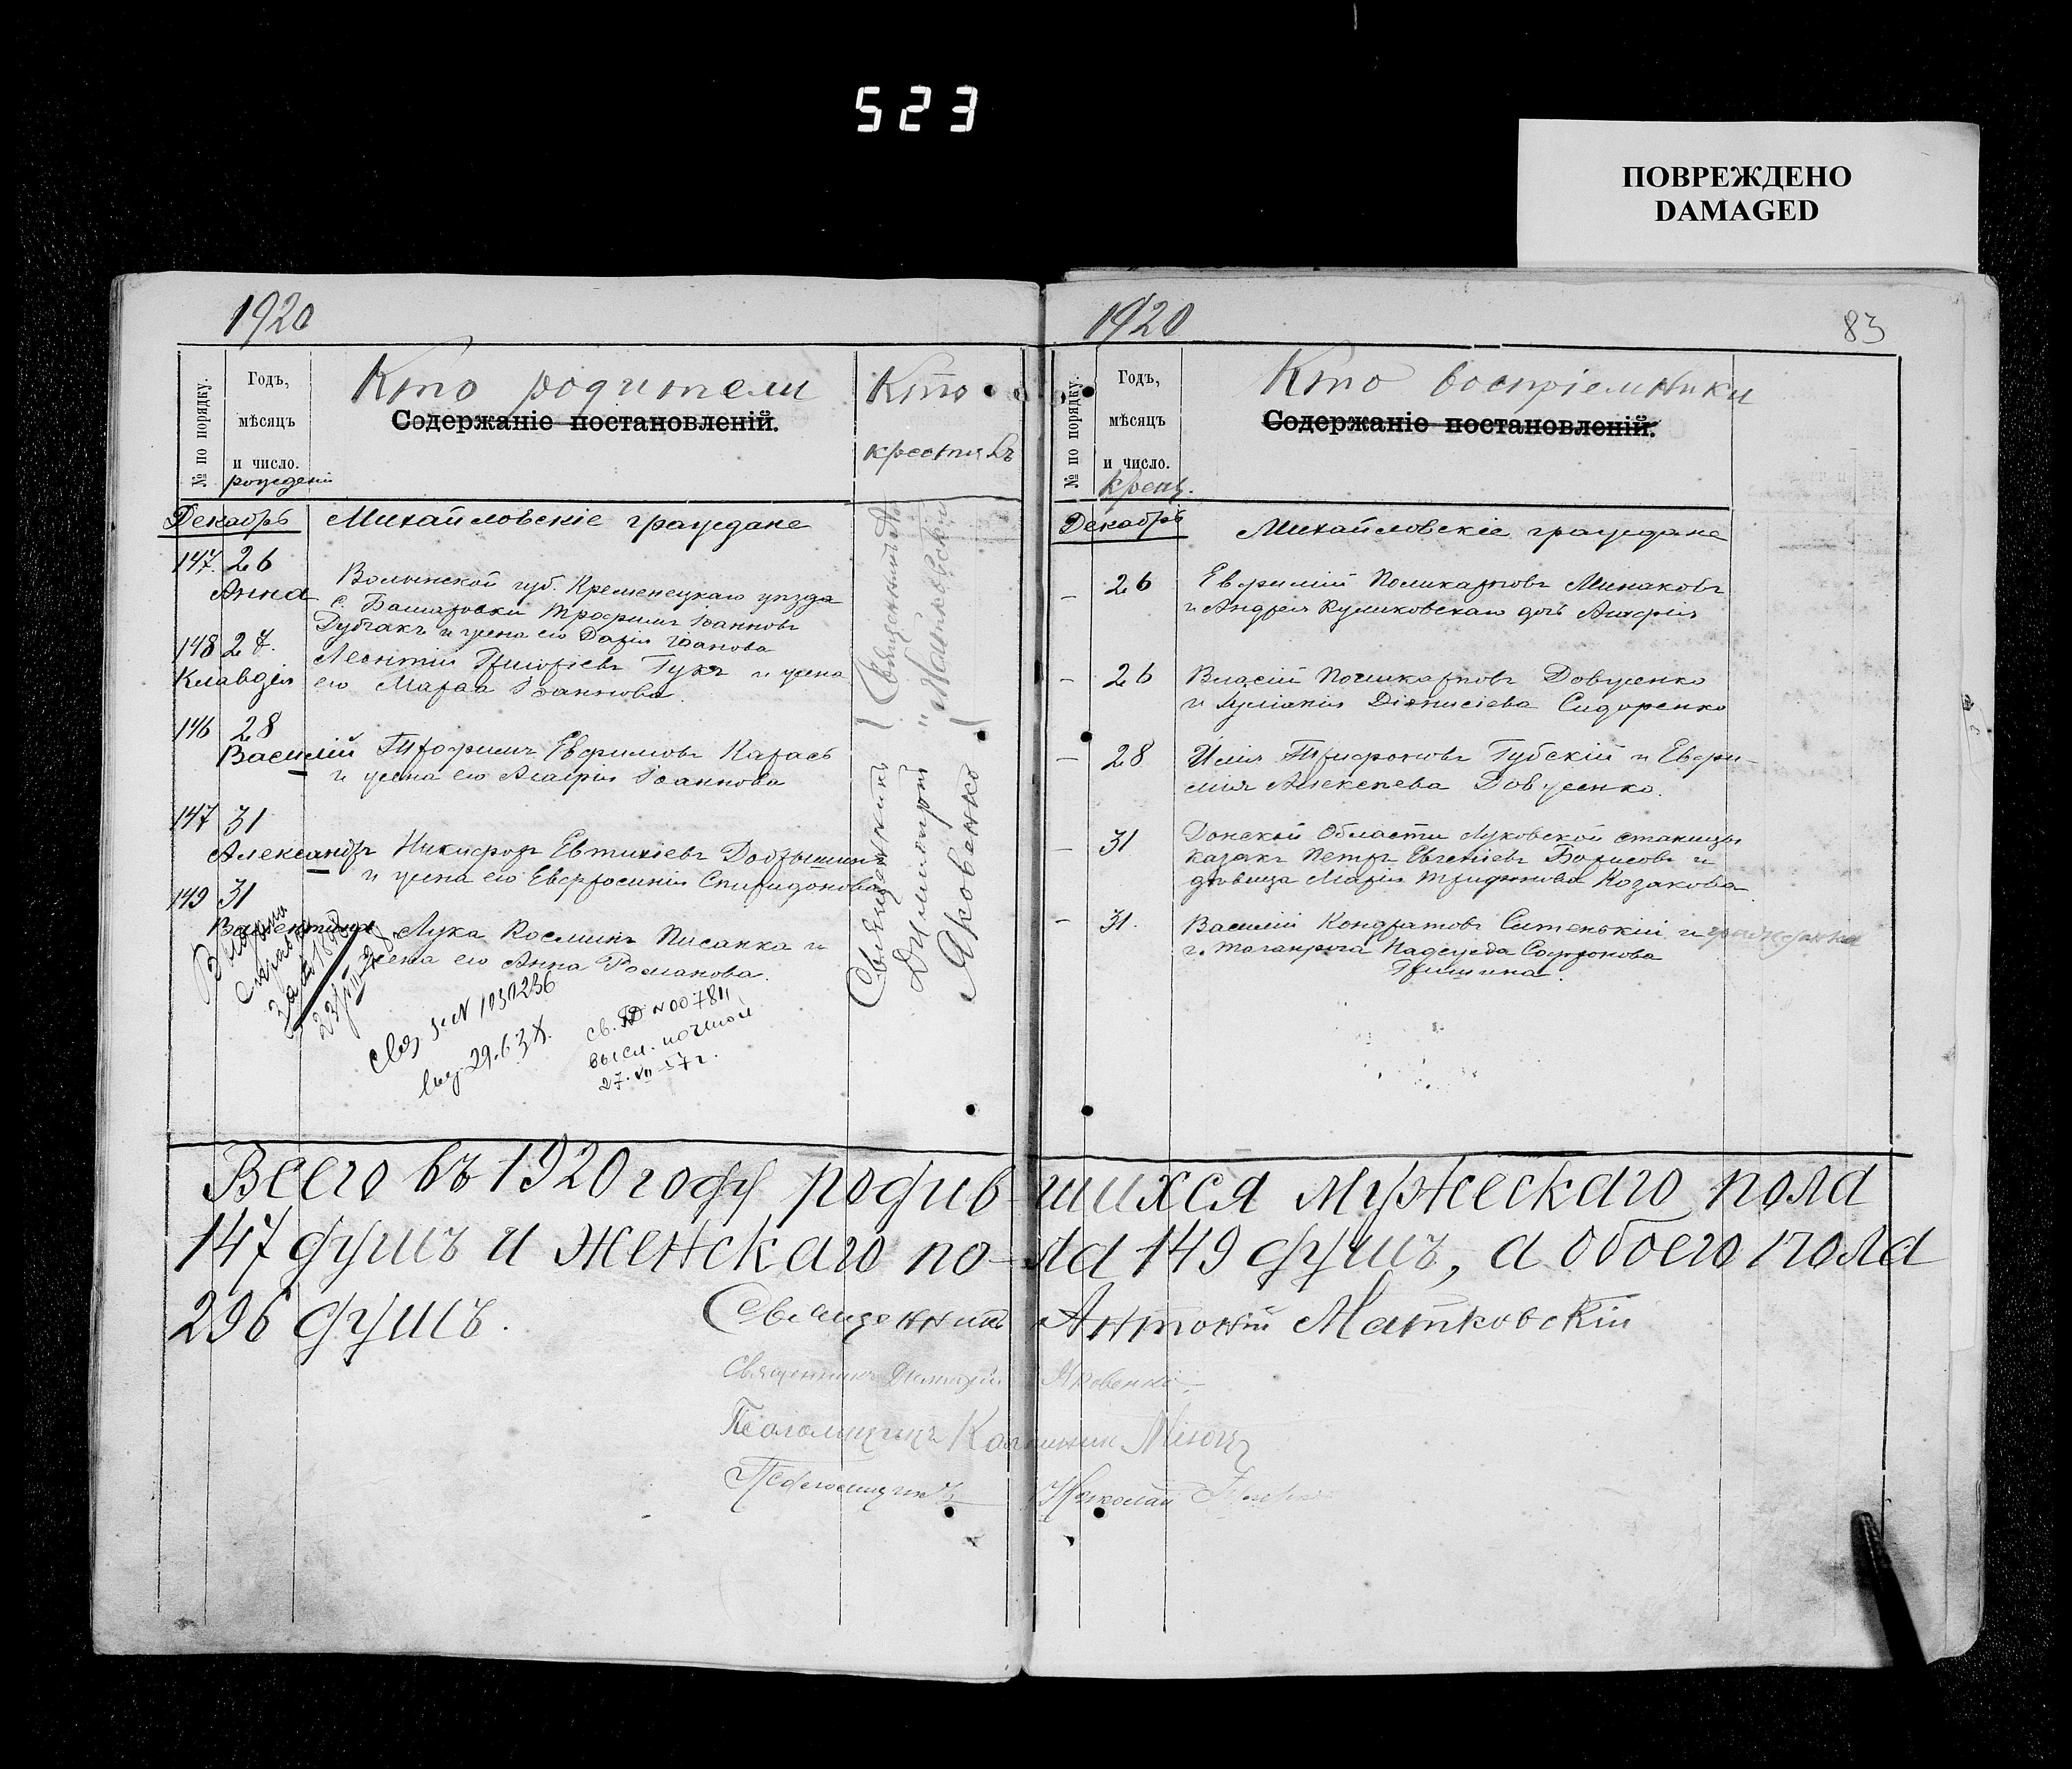 523
ПОВРЕЖДЕНО
DAMAGED
1920
№ по порядку.
Годъ,
мѣсяцъ
и число.
рожденія
Кто родители
Содержаніе постановленій.
Кто
крестилъ
Декабрь
Михайловскіе граждане
147. 26
Анна
Волынской губ. Кременецкаго уѣзда
с. Башаровки Трофимъ Іоанновъ
и жена его Дарія Іоанова
148 27.
Клавдія
Леонтій Григоріевъ Гужъ и жена
его Марѳа Іоаннова.
146 28
Василій
Трофимъ Евфимовъ Карась
и жена его Агафія Іоаннова
147 31
Александръ
Никифоръ Евтихіевъ
и жена его Евфросинія Спиридонова
149 31
Валентина
Лука Косминъ Писанка и
жена его Анна Романова.
Священникъ
Маньковскій
Священникъ
Димитрій
Яковенко
Выдана
справка
23/VIII
№ 1031236
29.6.
св. № 007811
высл. почтой
27.VII-57г.
1920
83
№ по порядку.
Годъ,
мѣсяцъ
и число.
крещ.
Кто воспріемники
Содержаніе постановленій.
Декабрь
Михайловскіе граждане
– 26 Евфимій Поликарповъ Минаковъ
и Андрея Куликовскаго дочь Агафія
– 26 Власій Поликарповъ Довженко
и Іуліанія Діонисіева Сидоренко
– 28 Илія Трифоновъ Губскій и Евфи-
мія Алексѣева Довженко.
– 31 Донской Области Луковской станицы
казакъ Петръ Евгеніевъ Борисовъ и
дѣвица Марія Трифонова Козакова
– 31. Василій Кондратовъ Ситенькій и гражданка
г. Таганрога Надежда Софронова
Гришина.
Всего въ 1920 году родившихся мужескаго пола
147 душъ и женскаго по-ла 149 душъ, а обоего пола
296 душъ.
Священникъ Антоній Матковскій
Священникъ Димитрій Яковенко.
Псаломщикъ
Псаломщикъ Николай